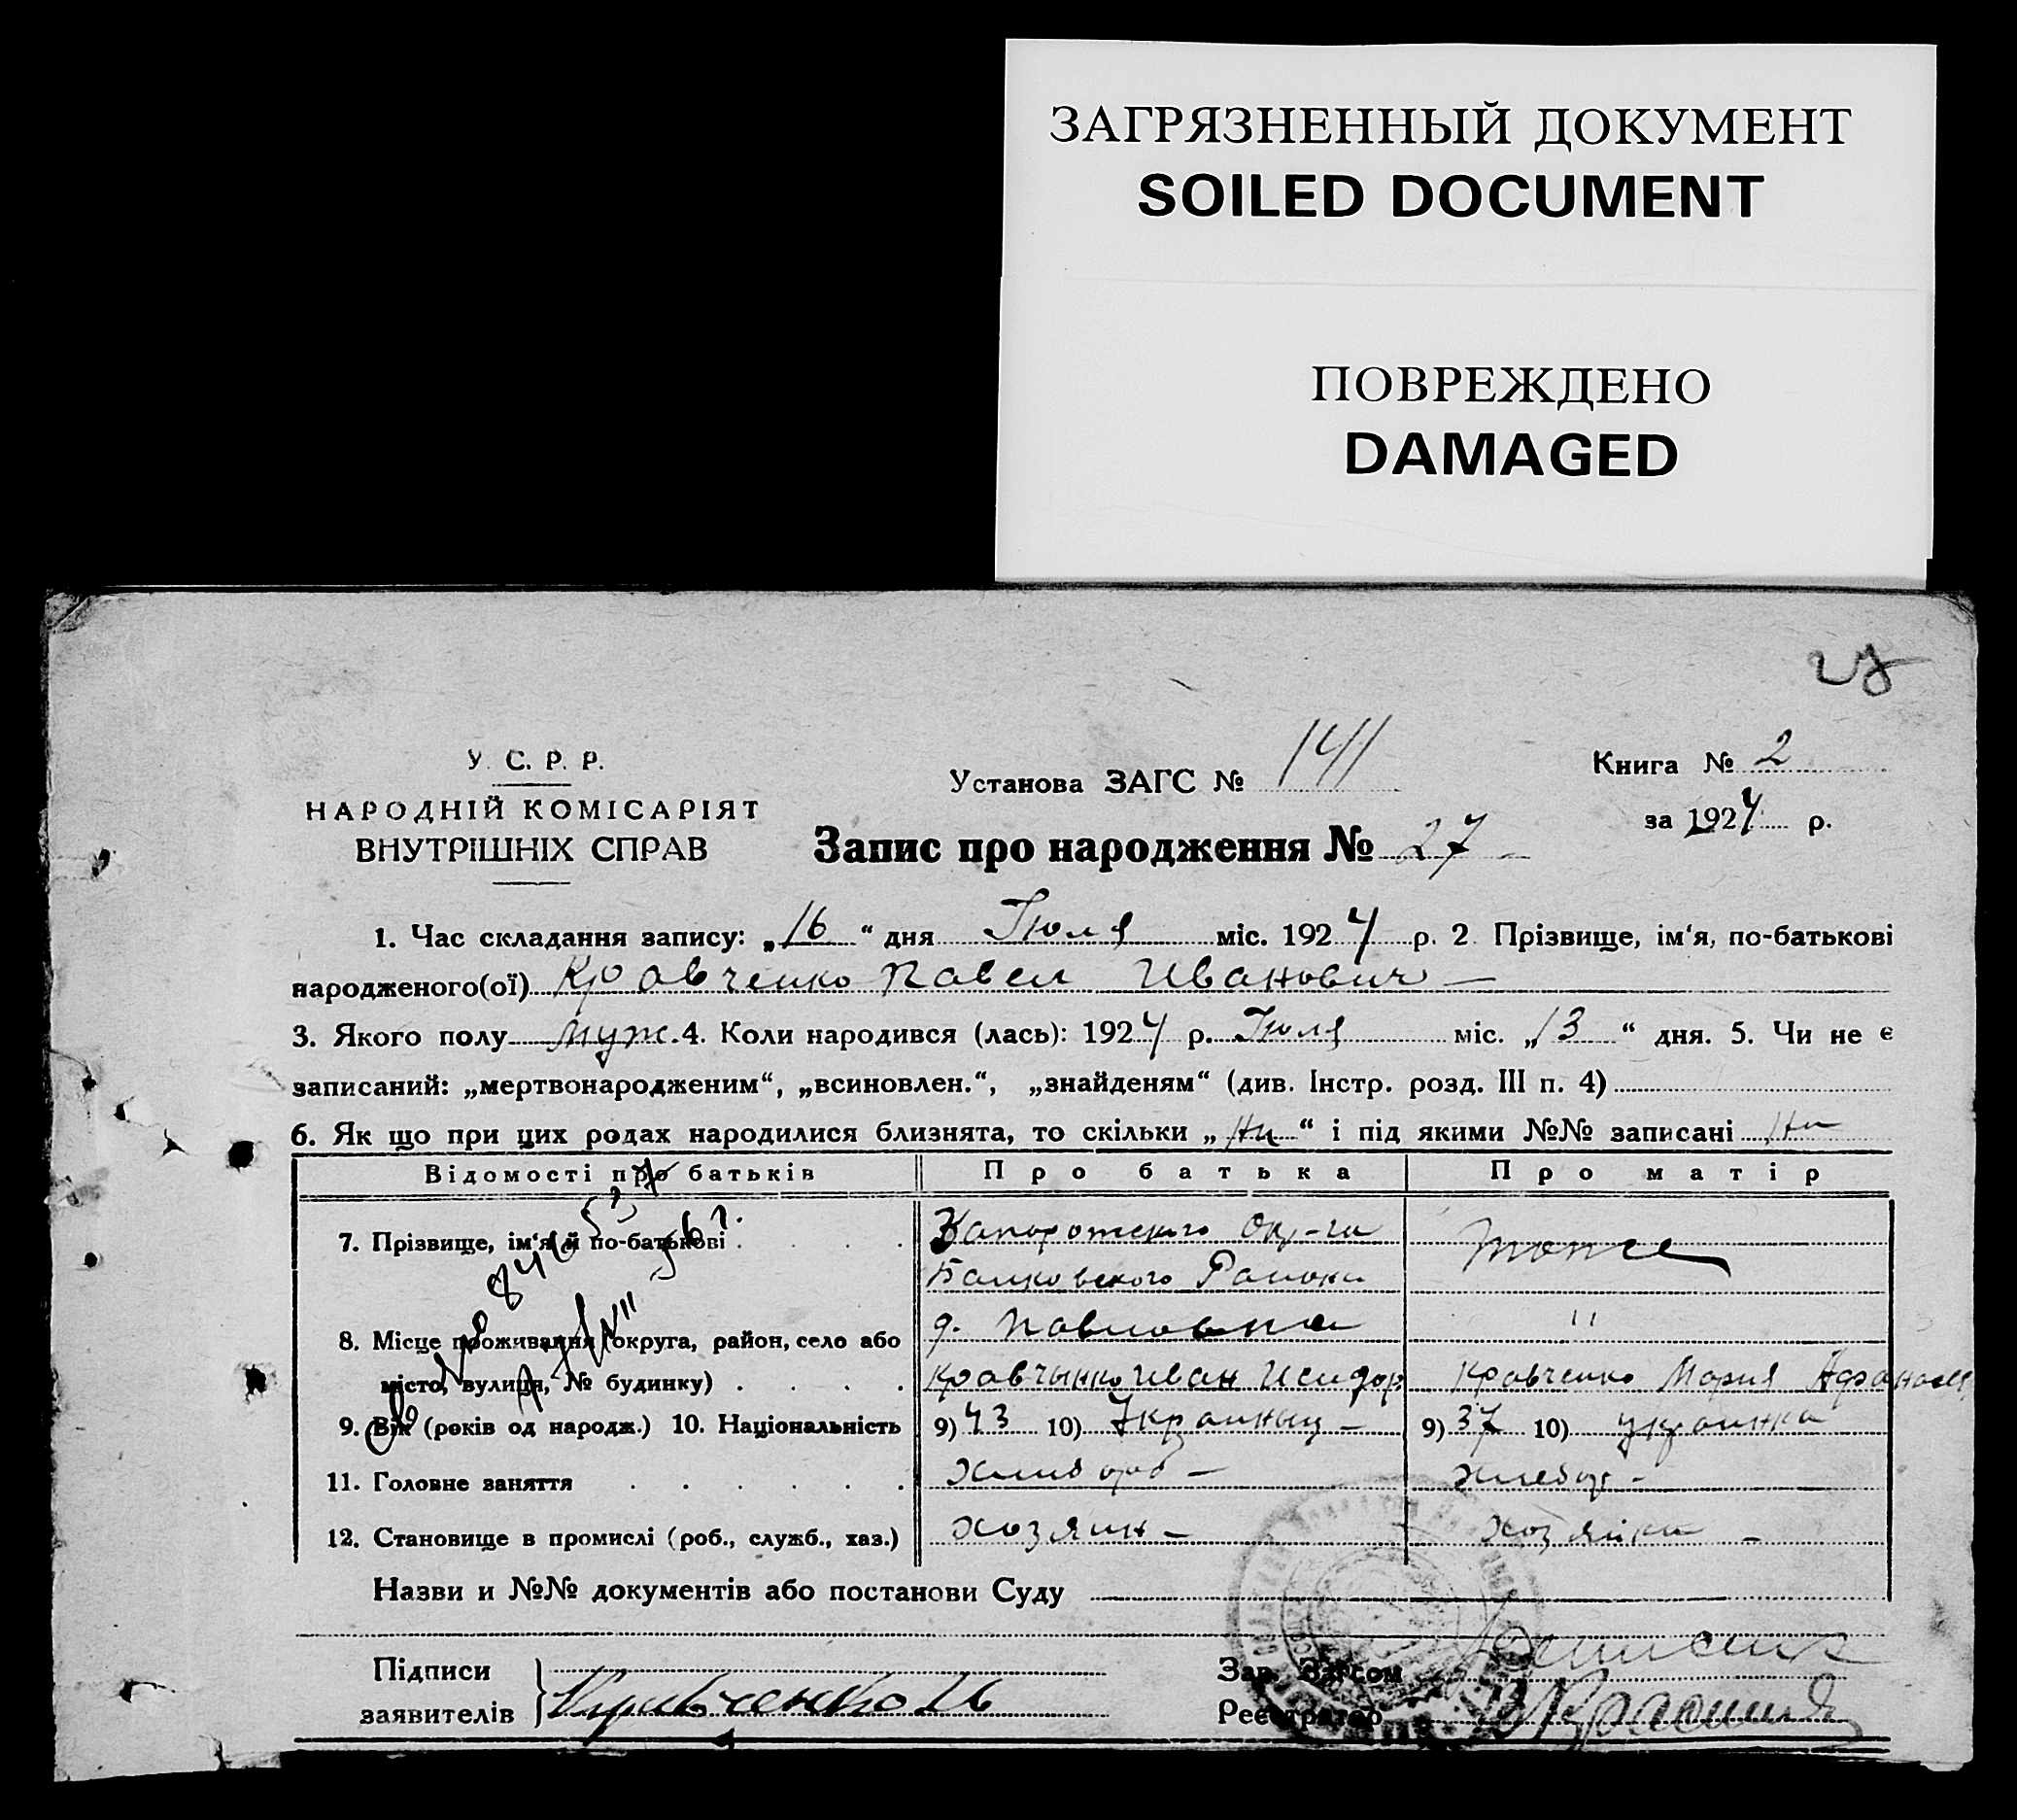 ЗАГРЯЗНЕННЫЙ ДОКУМЕНТ
SOILED DOCUMENT
ПОВРЕЖДЕНО
DAMAGED
27
У. С. Р. Р.
НАРОДНІЙ КОМІСАРІЯТ
ВНУТРІШНІХ СПРАВ
Установа ЗАГС № 141
Книга № 2
за 1924 р.
Запис про народження № 27
1. Час складання запису: „16“ дня Июля міс. 1924 р. 2. Прізвище, ім‘я, по-батькові
народженого(ої) Кравченко Павел Иванович
3. Якого полу муж. 4. Коли народився (лась): 1924 р. Июля міс. „13“ дня. 5. Чи не є
записаний: „мертвонародженим“, „всиновлен.“, „знайденям“ (див. Інстр. розд. III п. 4)
6. Як що при цих родах народилися близнята, то скільки „ни“ і під якими №№ записані ни
Відомості про батьків Про батька Про матір
7. Прізвище, ім‘я й по-батькові Запорожского Окр-га тоже
Района
8. Місце проживання (округа, район, село або д. Павловка "
місто, вулиця, № будинку) Кравчынко Иван Исидор Кравченко Мария Афанасия
9. Вік (років од народж.) 10. Національність 9) 43 10) Украиныц 9) 37 10) украинка
11. Головне заняття хлибороб хлебор
12. Становище в промислі (роб., служб., хаз.) хозяин хозяйка
Назви и №№ документів або постанови Суду
Підписи
заявителів Кравченко И
Зав. Загсом
Реєстратор